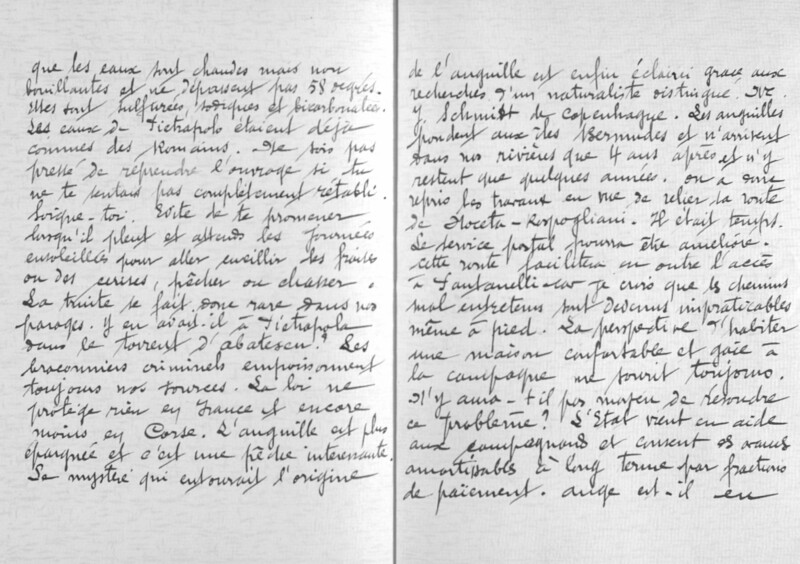 que les eaux sont chaudes mais non
bouillantes et ne dépassent pas 58 degrés.
Elles sont sulfurées, sodiques et bicarbonatées.
Les eaux de Pietrapola étaient déjà
connues des Romains. Ne sois pas
pressé de reprendre l'ouvrage si tu
ne te sentais pas complètement rétabli.
Soigne-toi. Evite de te promener
lorsqu'il pleut et attends les journées
ensoleillées pour aller cueillir les fraises
ou des cerises, pêcher ou chasser.
La truite se fait donc rare dans nos
parages. Y en avait-il à Pietrapola
dans le torrent d'abatescu? Les
braconniers criminels empoisonnent
toujours nos sources. La loi ne
protège rien en France et encore
moins en Corse. L'anguille est plus
épargnée et c'est une pêche intéressante.
Le mystère qui entourait l'origine
de l'anguille est enfin éclairci grâce aux
recherches d'un naturaliste distingué. Mr.
J. Schmidt de Copenhague. Les anguilles
pondent aux îles Bermudes et n'arrivent
dans nos rivières que 4 ans après et n'y
restent que quelques années. On a donc
repris les travaux en vue de relier la route
de Piloceta-Rospogliani. Il était temps.
Le service postal pourra être amélioré.
Cette route facilitera en outre l'accès
à Fantanelli-car je crois que les chemins
mal entretenus sont devenus impraticables
même à pied. La perspective d'habiter
une maison confortable et gaie à
la campagne me sourit toujours.
N'y aura-t-il pas moyen de résoudre
ce problème? L'Etat vient en aide
aux campagnards et consent des
amortissables à long terme par fractions
de paiement. Ange est-il en